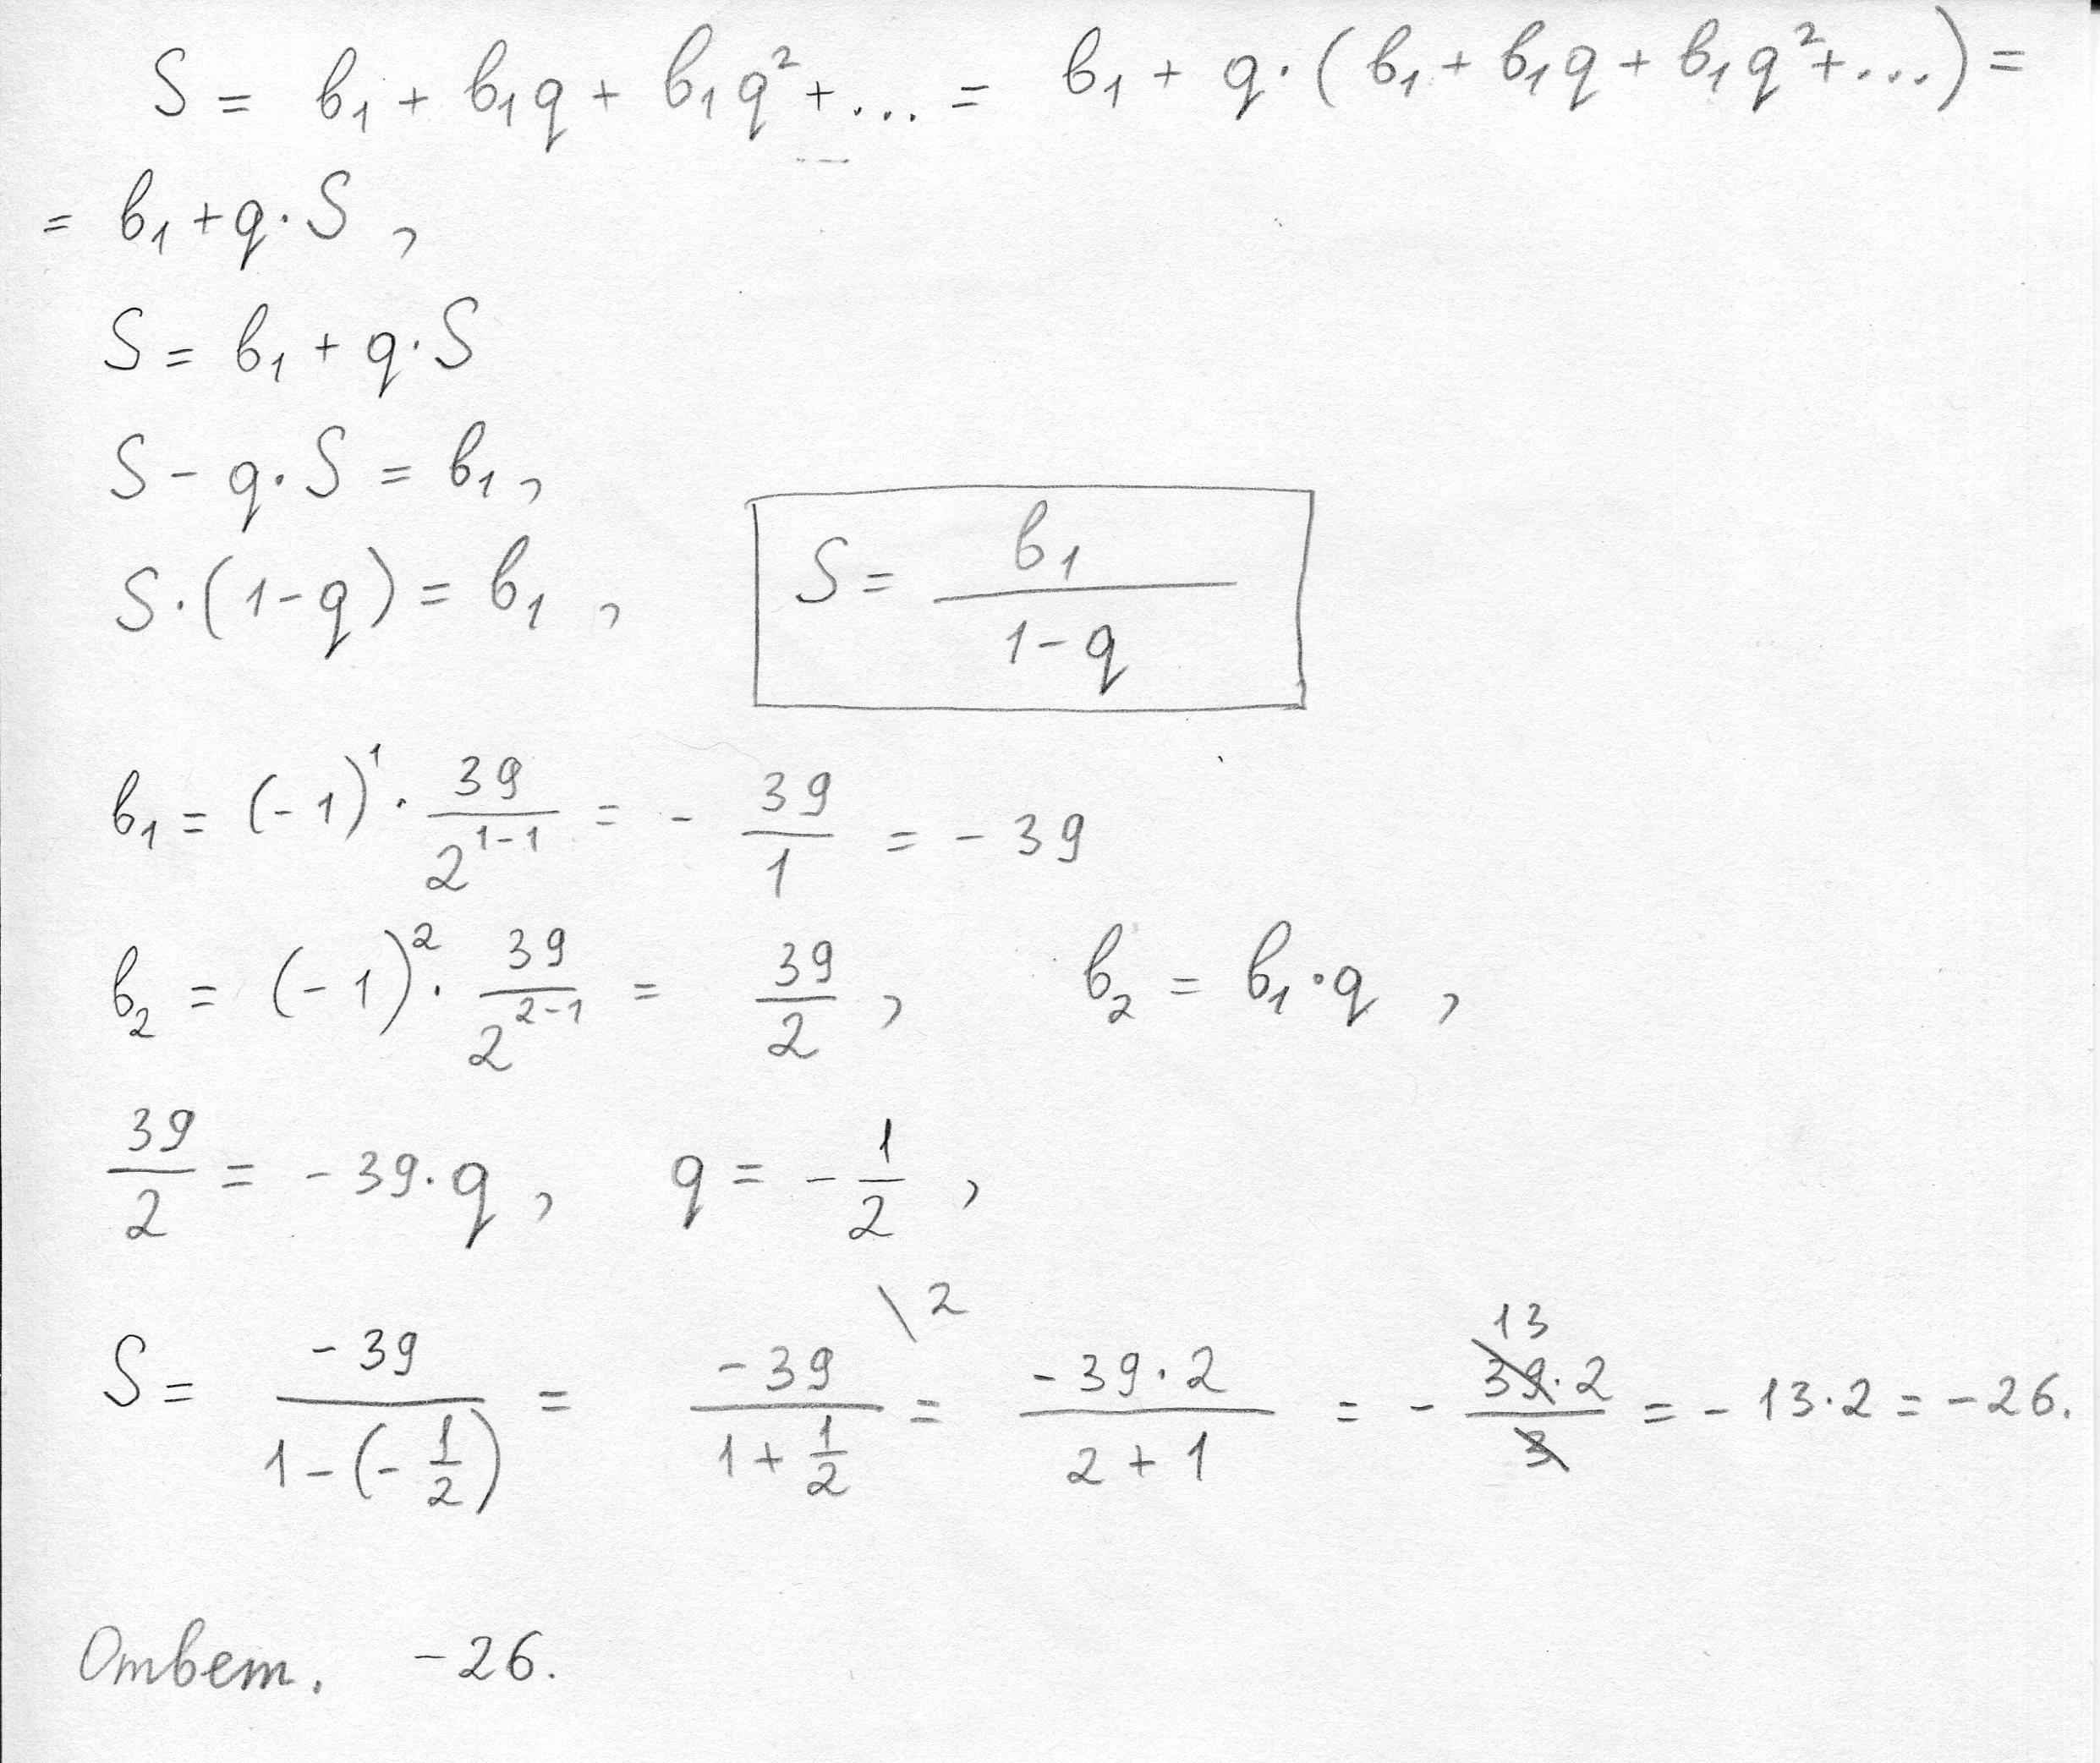 S = b₁ + b₁q + b₁q² + ... = b₁ + q·(b₁ + b₁q + b₁q² + ...) =
= b₁ + q·S ,
S = b₁ + q·S
S - q·S = b₁ ,
S·(1-q) = b₁ ,
S = b₁/(1-q)
b₁ = (-1)¹ · 39/2¹⁻¹ = - 39/1 = - 39
b₂ = (-1)² · 39/2²⁻¹ = 39/2 , b₂ = b₁·q ,
39/2 = - 39·q , q = - 1/2 ,
S = -39/(1-(-1/2)) = -39/(1+1/2) \2 = -39·2/(2+1) = - 39·2/3 13 = - 13·2 = -26.
Ответ. -26.